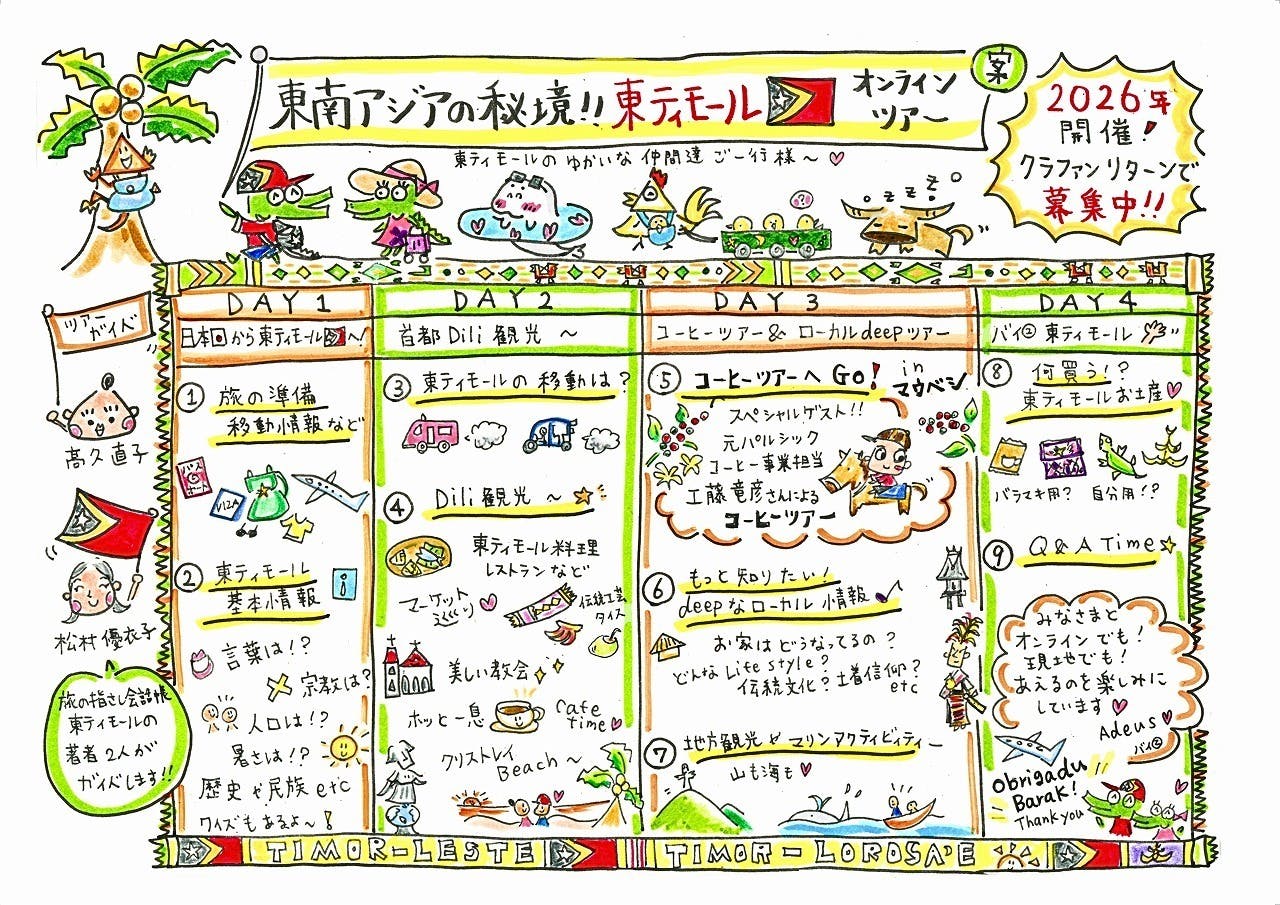 東南アジアの秘境!! 東ティモール オンラインツアー
案
2026年
開催!
クラファンリターンで
募集中!!
東ティモールの ゆかいな 仲間達 ご一行様～♡
z z z
?
ツアー
ガイド
高久 直子
松村 優衣子
旅の指さし会話帳
東ティモールの
著者 2人が
ガイドします!!
DAY 1
日本から東ティモール～!
① 旅の準備
移動情報など
パスポート
VIZA
② 東ティモール
基本情報
i
言葉は!?
宗教は?
人口は!?
暑さは!?
歴史や民族 etc
クイズもあるよ～!
DAY 2
首都 Dili 観光 ～
③ 東ティモールの 移動は?
④ Dili 観光 ～☆
東ティモール料理
レストランなど
マーケット
めぐり♡
伝統工芸
タイス
美しい教会
ホッと一息
Cafe
time♡
クリストレイ
Beach～
DAY 3
コーヒーツアー & ローカルdeepツアー
⑤ コーヒーツアーへ GO! in
マウベシ
スペシャルゲスト!!
元パルシック
コーヒー事業担当
工藤 竜彦さんによる
コーヒーツアー
⑥ もっと知りたい!
deepなローカル 情報♪
お家は どうなってるの?
どんな Life style?
伝統文化? 土着信仰?
etc
⑦ 地方観光や マリンアクティビィティー
山も海も♡
DAY 4
バイ② 東ティモール
⑧ 何買う!?
東ティモールお土産♡
バラマキ用? 自分用!?
⑨ Q & A Time☆
みなさまと
オンラインでも!
現地でも!
あえるのを楽しみに
しています♡
Adeus♡
バイ②
Obrigadu
Barak!
Thank you
TIMOR-LESTE TIMOR-LOROSA'E